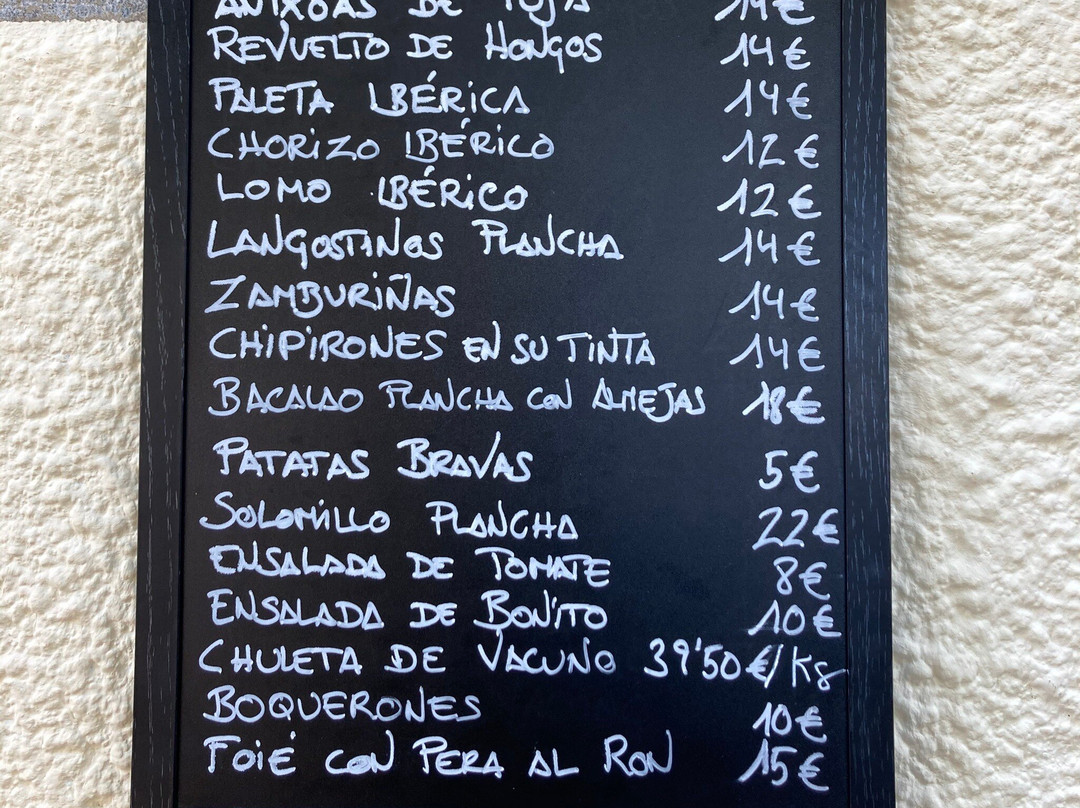 ANTXOAS DE TOJA 14€
REVUELTO DE HONGOS 14€
PALETA IBÉRICA 14€
CHORIZO IBÉRICO 12€
LOMO IBÉRICO 12€
LANGOSTINOS PLANCHA 14€
ZAMBURIÑAS 14€
CHIPIRONES EN SU TINTA 14€
BACALAO PLANCHA CON ALMEJAS 18€
PATATAS BRAVAS 5€
SOLOMILLO PLANCHA 22€
ENSALADA DE TOMATE 8€
ENSALADA DE BONITO 10€
CHULETA DE VACUNO 39'50€/Kg
BOQUERONES 10€
FOIÉ CON PERA AL RON 15€